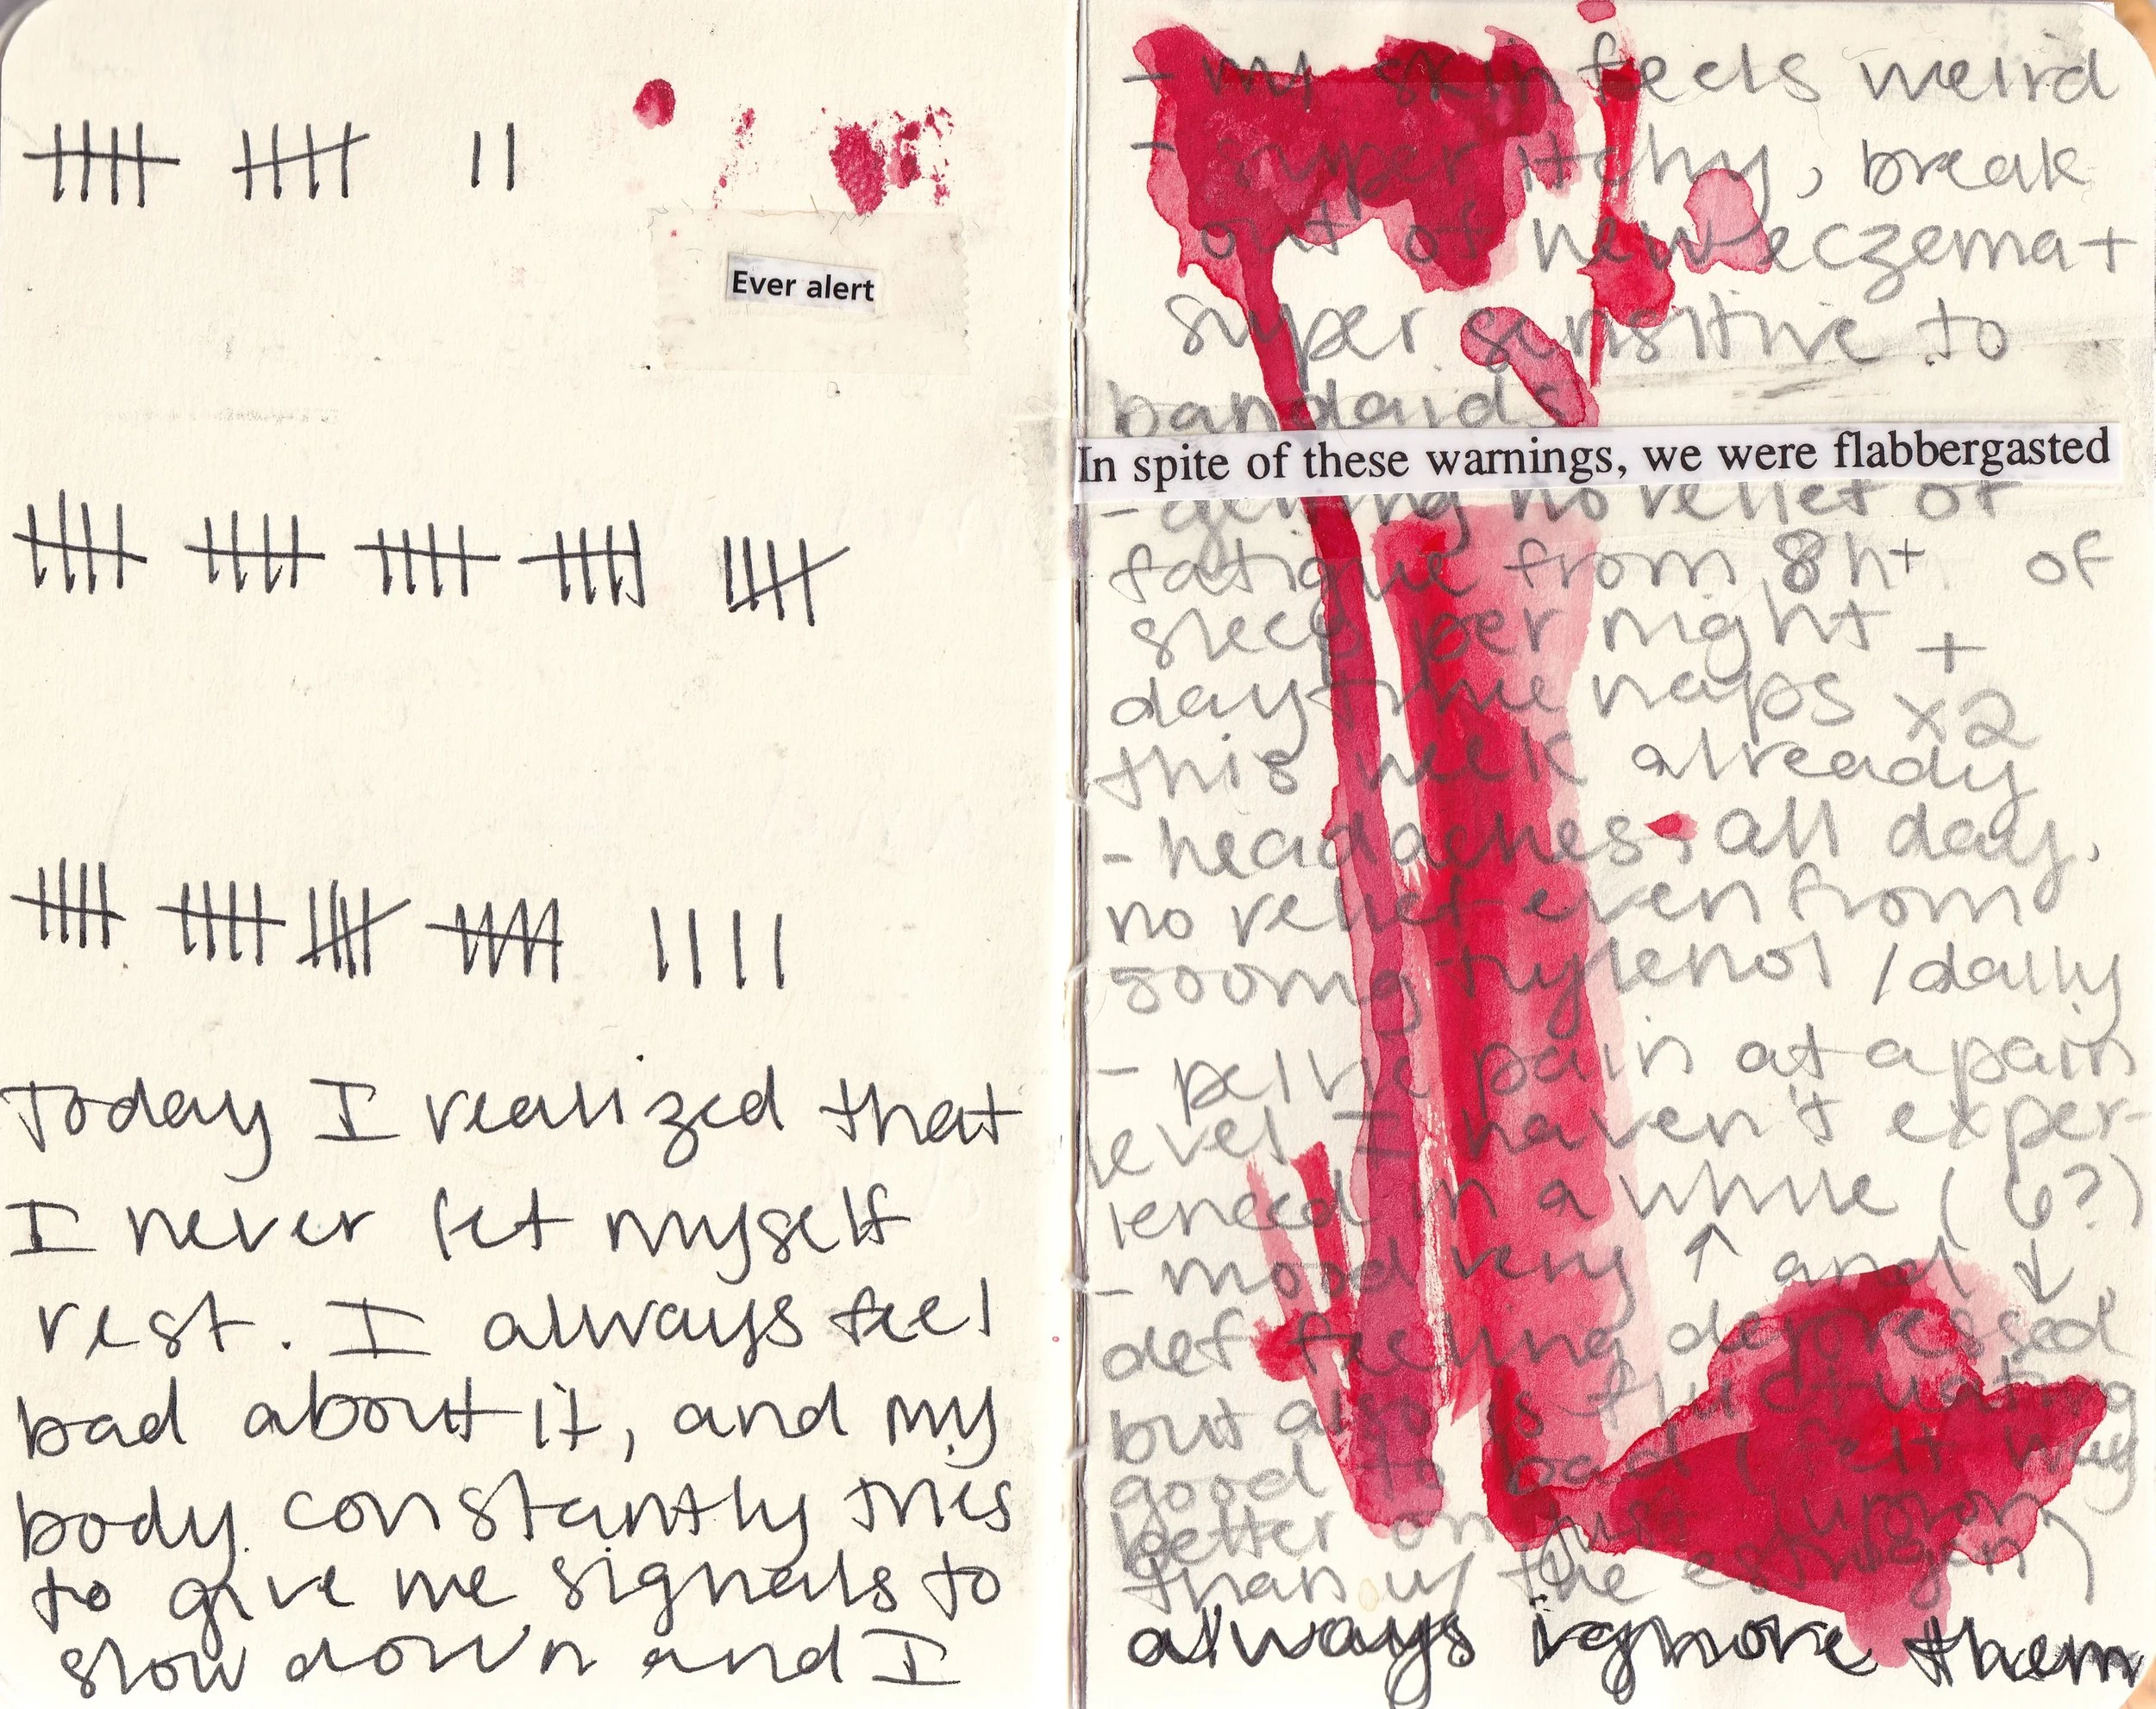 Ever alert
Today I realized that
I never let myself
rest. I always feel
bad about it, and my
body constantly tries
to give me signals to
slow down and I
- my skin feels weird
- super itchy, break
out of new eczema +
super sensitive to
bandaids
In spite of these warnings, we were flabbergasted
- getting no relief of
fatigue from 8h+ of
sleep per night +
daytime naps x2
this week already
- headaches, all day,
no relief even from
500mg tylenol / daily
- pelvic pain at a pain
level I haven't exper-
ienced in a while (6?)
- mood very ↑ and ↓,
def feeling depressed
but also is fluctuating
good to bad (felt way
better on just lupron
than w/ the estrogen)
always ignore them